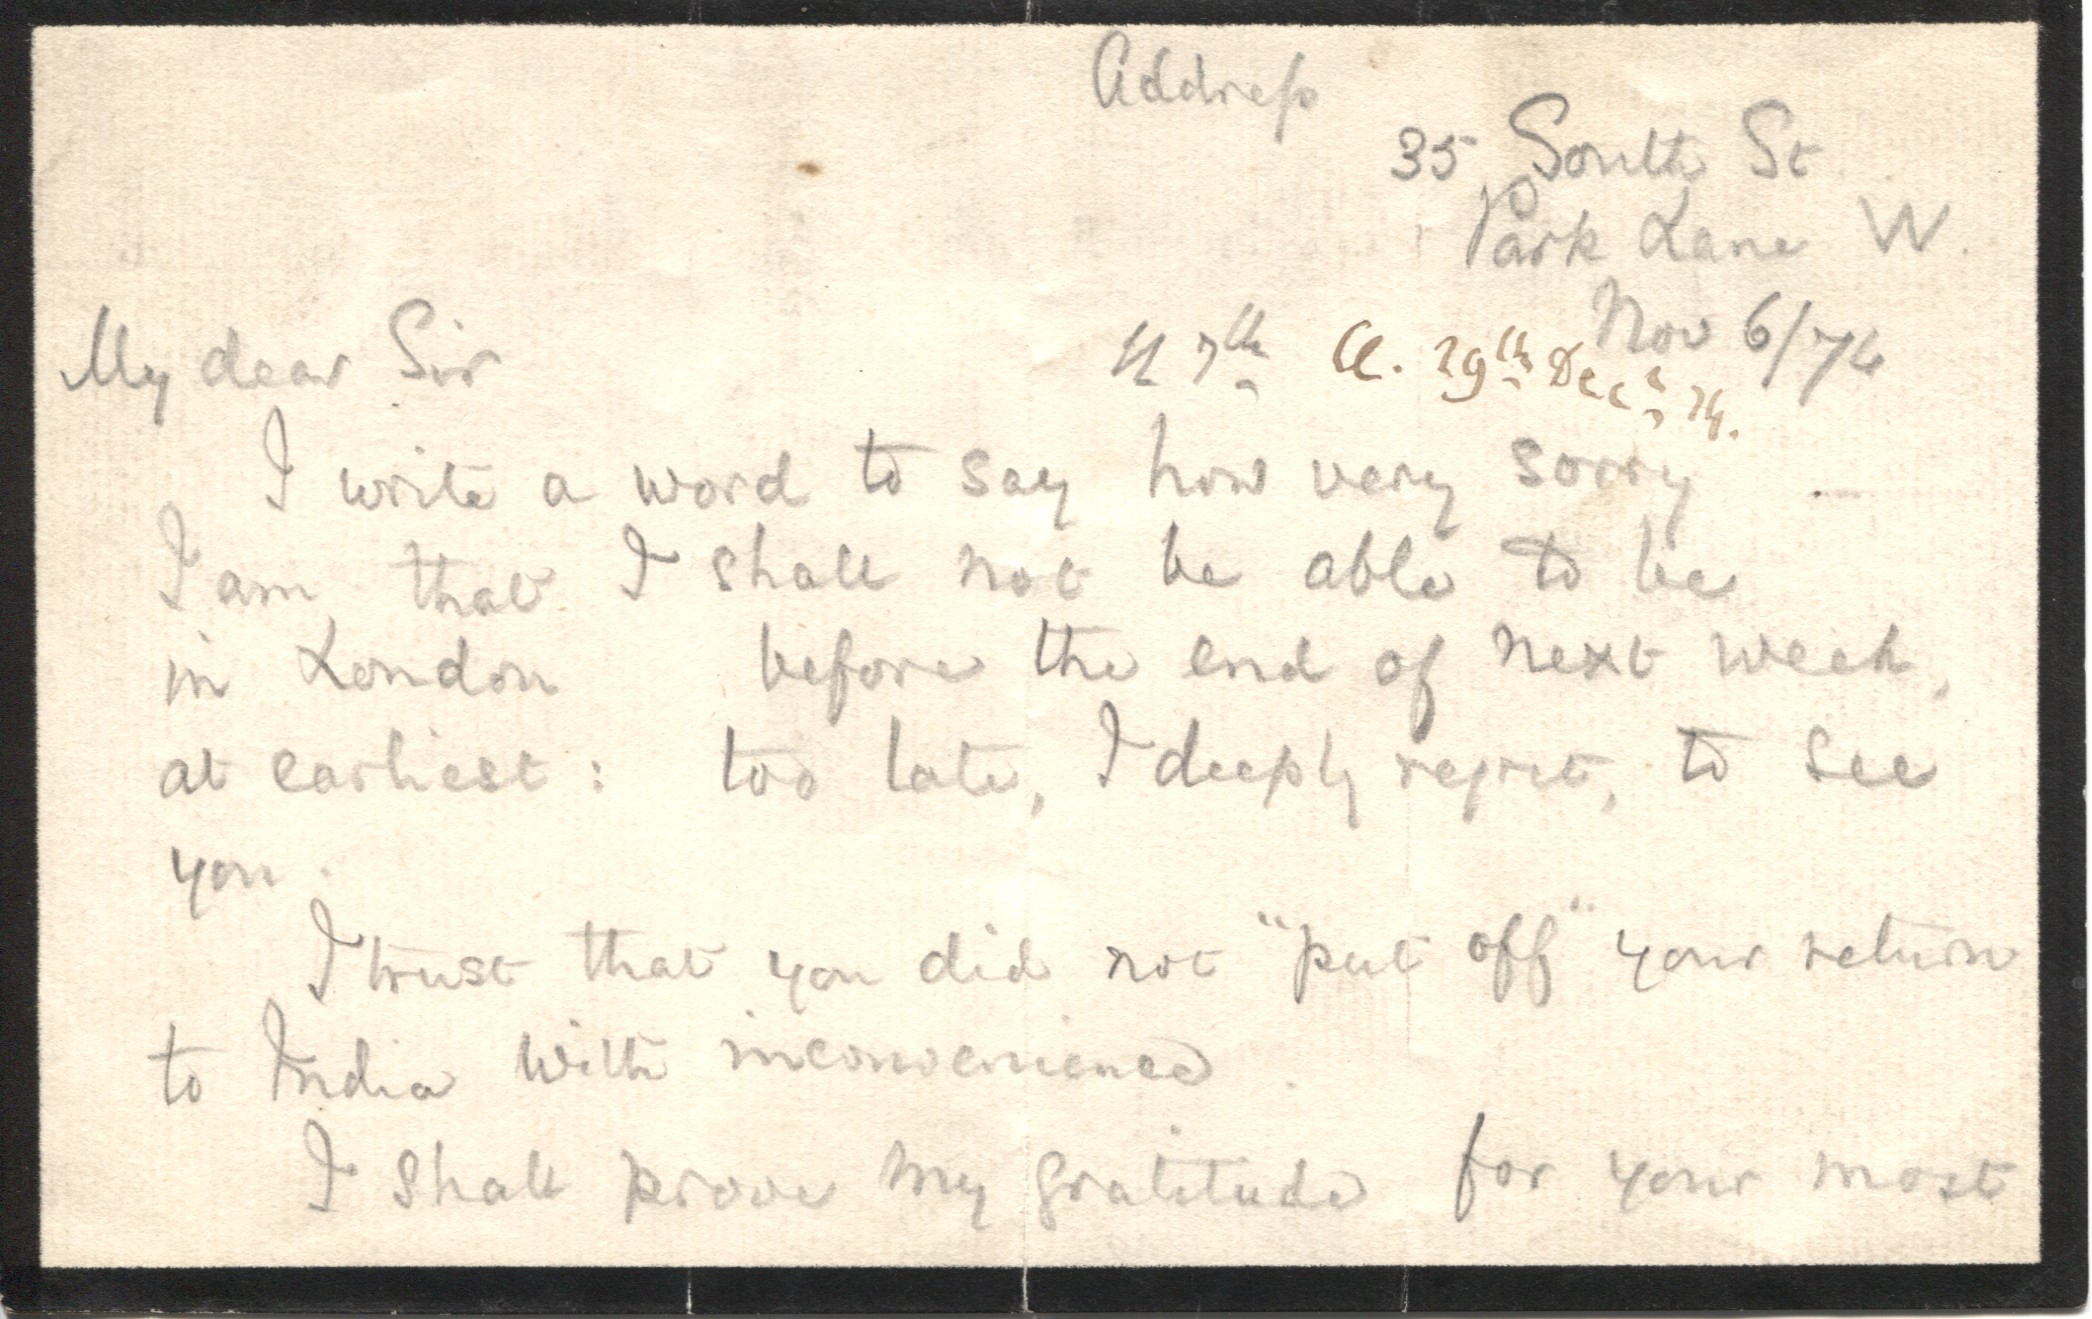 Address
35 South St
Park Lane W.
Nov 6/74
7th
29th Decr 74.
My dear Sir
I write a word to say how very sorry
I am that I shall not be able to be
in London before the end of next week,
at earliest: too late, I deeply regret, to see
you.
I trust that you did not "put off" your return
to India with inconvenience.
I shall prove my gratitude for your most